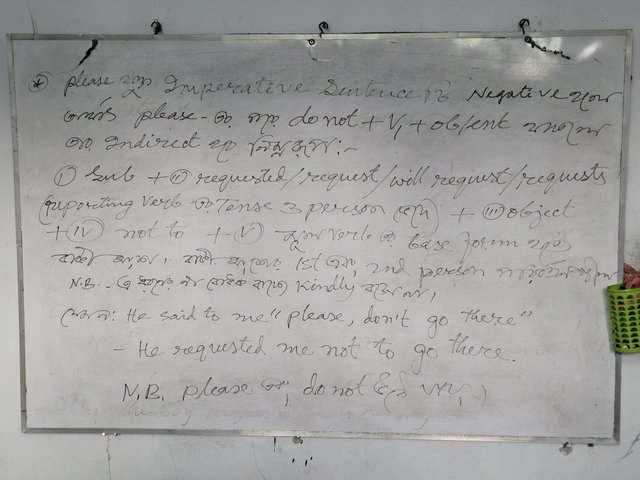 * please যুক্ত Imperative Sentence টি Negative হলে
অর্থাৎ please- এর পরে do not + V₁ + ob/ext থাকলে
তার Indirect হয় নিম্নরূপে:-
① Sub + ⑪ requested/request/will request/requests
(reporting verb এর Tense ও person দেখে) + ⑪① object
+ ⑰ not to + ⑤ মূল verb এর base form হতে
বাকী অংশ। বাকী অংশের 1st এবং 2nd person
N.B. - kindly
যেমন: He said to me "please, don't go there"
- He requested me not to go there.
N.B. please এবং do not